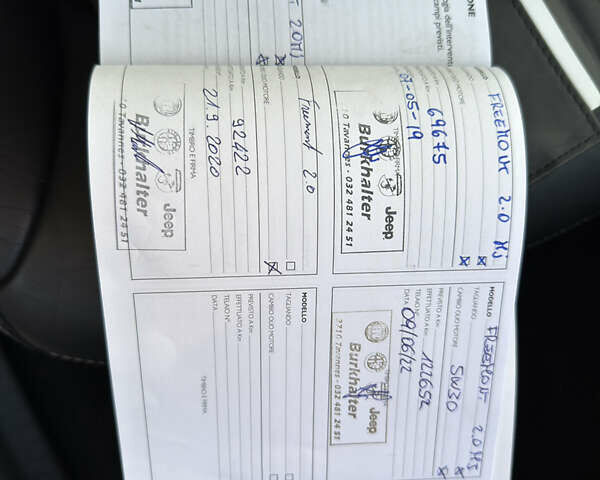 IONE
2.0 MJ
FREEMONT 2.0 MJ
69675
07-05-19
TIMBRO E FIRMA
Jeep
Burkhalter
10 Tavannes - 032 481 24 51
MODELLO
FREEMONT 2.0 MJ
TAGLIANDO
CAMBIO OLIO MOTORE
5W30
PREVISTO A Km
EFFETTUATO A Km
122652
TELAIO N°
DATA
09/06/22
Jeep
Burkhalter
2710 Tavannes - 032 481 24 51
Freemont 2.0
92422
21.9.2020
TIMBRO E FIRMA
Jeep
Burkhalter
0 Tavannes - 032 481 24 51
MODELLO
TAGLIANDO
CAMBIO OLIO MOTORE
PREVISTO A Km
EFFETTUATO A Km
TELAIO N°
DATA
TIMBRO E FIRMA